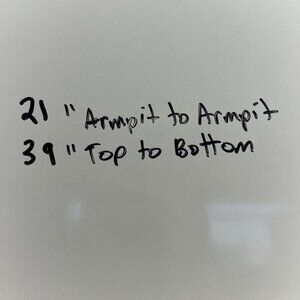 21" Armpit to Armpit
39" Top to Bottom